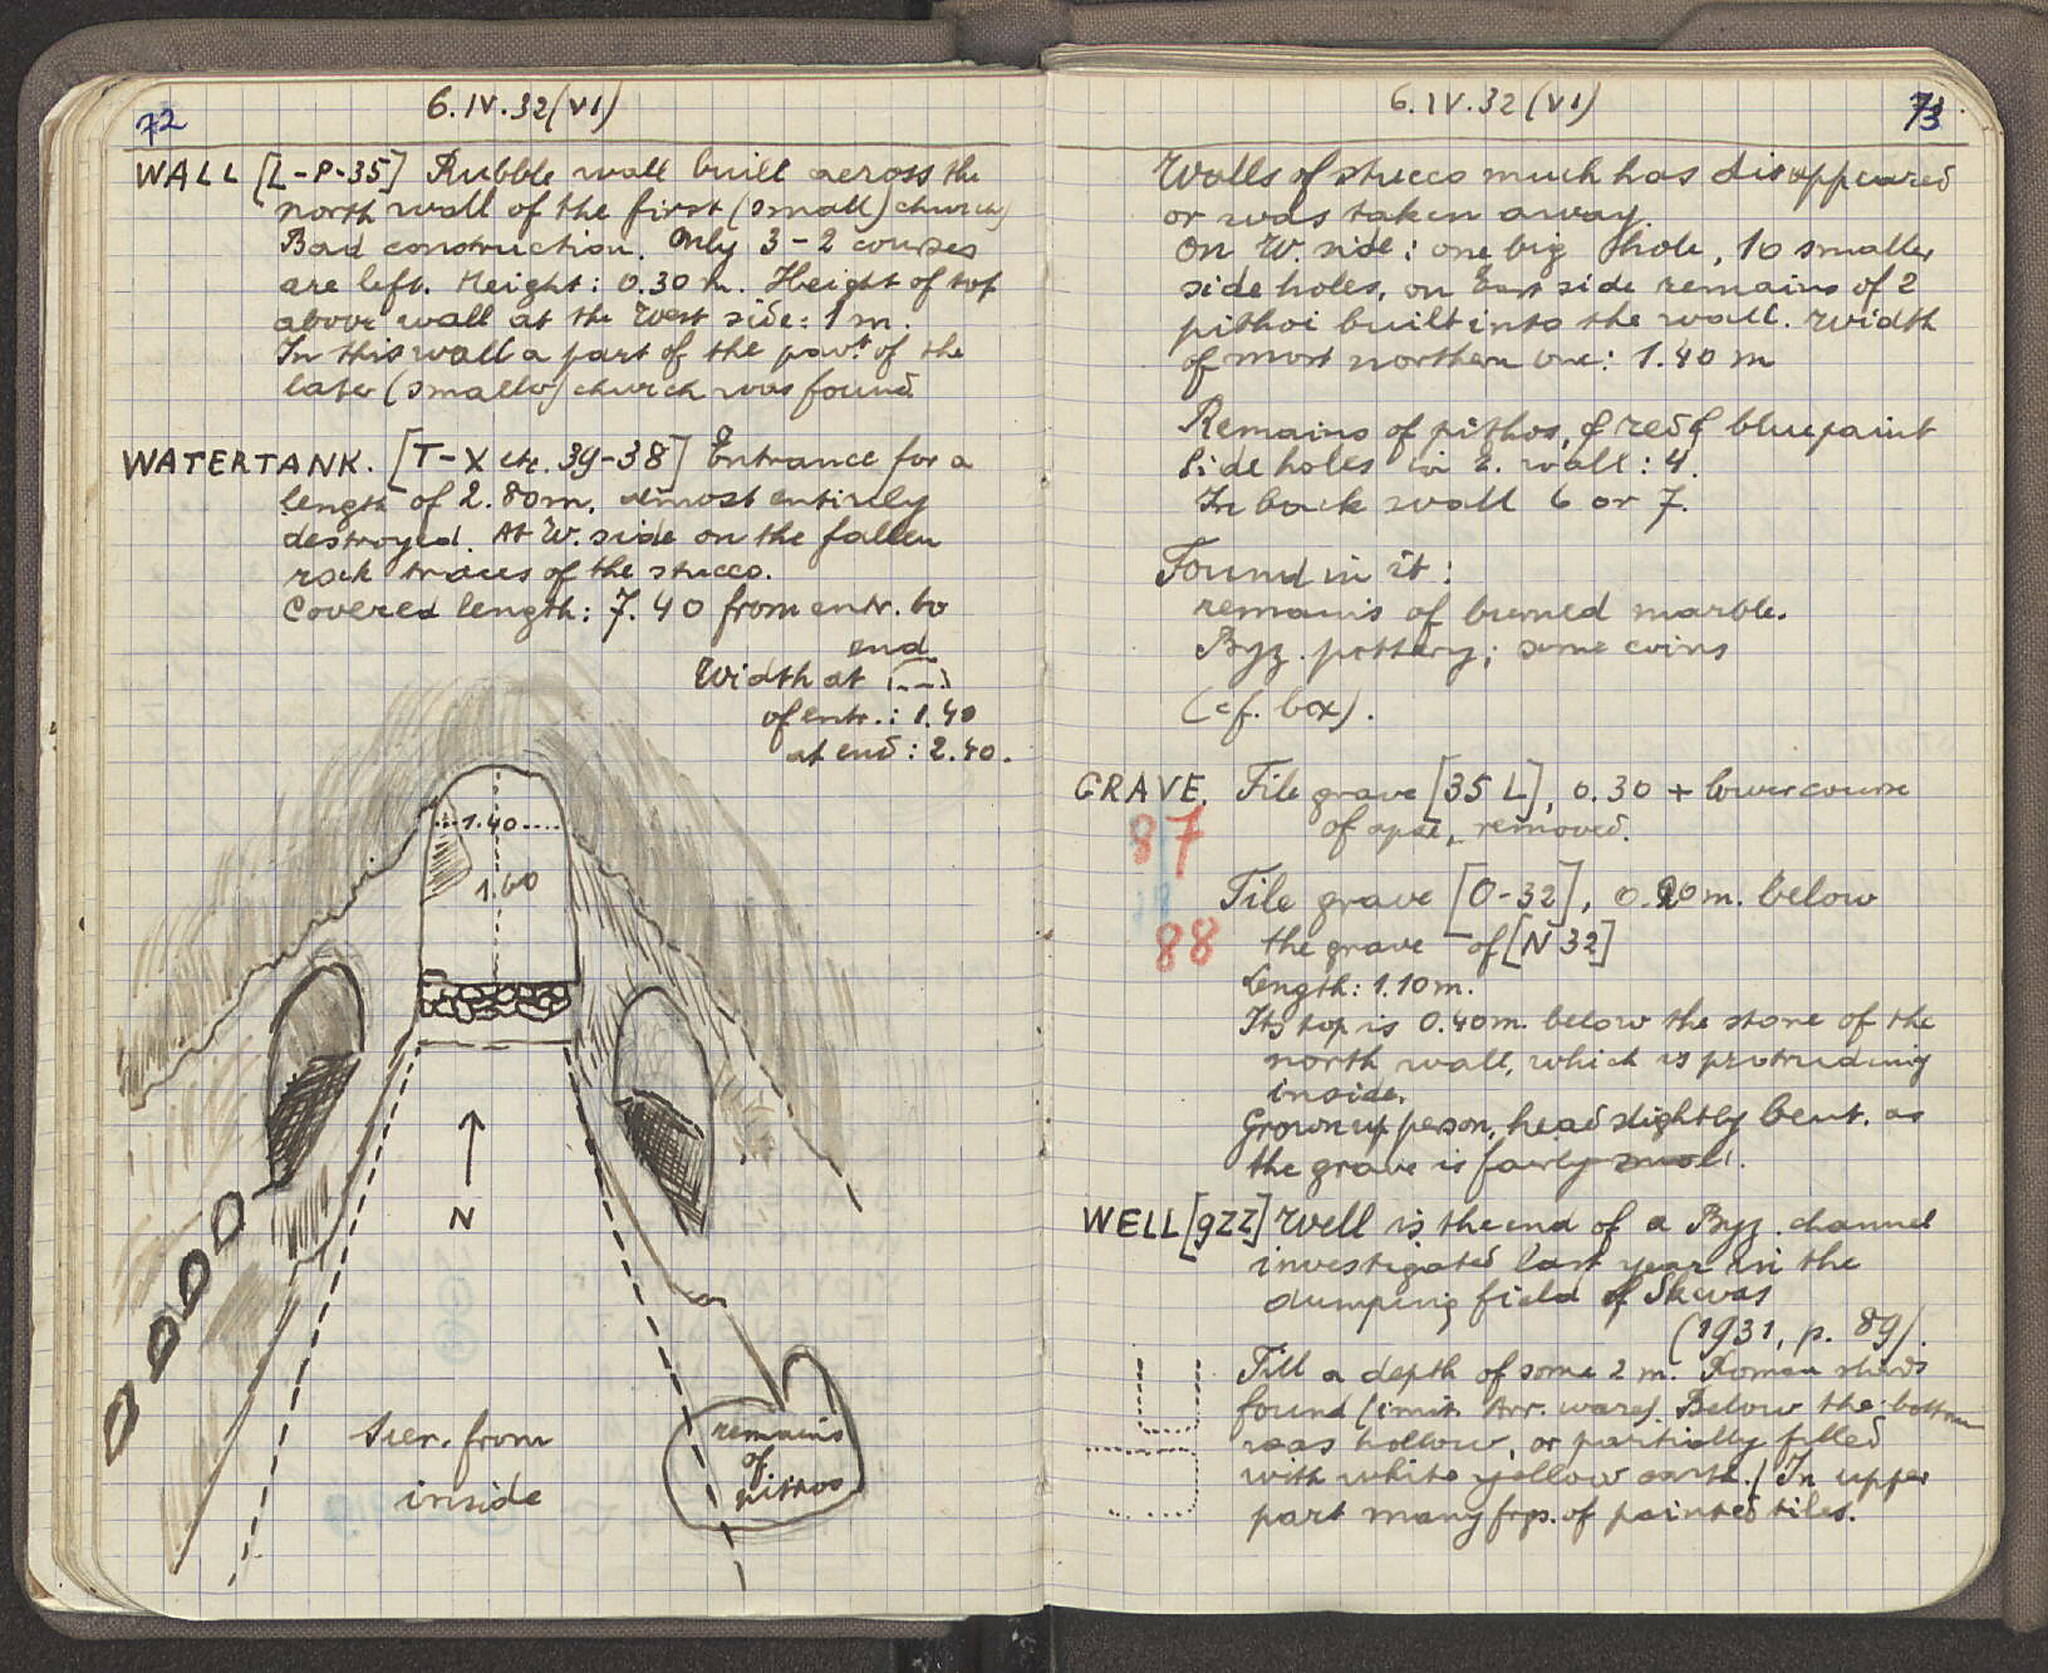 72
6.IV.32 (VI)
WALL [L-P-35] Rubble wall built across the
north wall of the first (small) church
Bad construction. Only 3-2 courses
are left. Height: 0.30 m. Height of top
above wall at the West side: 1 m.
In this wall a part of the pavt. of the
later (smaller) church was found
WATERTANK. [T-X etc. 39-38] Entrance for a
length of 2.80m, almost entirely
destroyed. At W. side on the fallen
rock traces of the stucco.
Covered length: 7.40 from entr. to
end.
Width at
of entr.: 1.40
at end: 2.40.
1.40
1.60
N
Seen from
inside
remains
of
pithos
6.IV.32 (VI)
73
Walls of stucco much has disappeared
or was taken away.
On W. side: one big hole, 10 smaller
side holes, on East side remains of 2
pithoi built into the wall. Width
of most northern one: 1.40 m
Remains of pithos, of red & blue paint
Side holes in E. wall: 4.
In back wall 6 or 7.
Found in it:
remains of burned marble.
Byz. pottery; some coins
(cf. box).
GRAVE. Tile grave [35 L], 0.30 + lower course
of apse, removed.
87
Tile grave [O-32], 0.20m. below
88
the grave of [N 32]
Length: 1.10m.
Its top is 0.40m. below the stone of the
north wall, which is protruding
inside.
Grown up person, head slightly bent. as
the grave is fairly small.
WELL [9ZZ] Well is the end of a Byz. channel
investigated last year in the
dumping field of Skevas
(1931, p. 89).
Till a depth of some 2 m. Roman sherds
found (imit. Arr. ware). Below the bottom
was hollow, or partially filled
with white yellow earth. / In upper
part many frgs. of painted tiles.